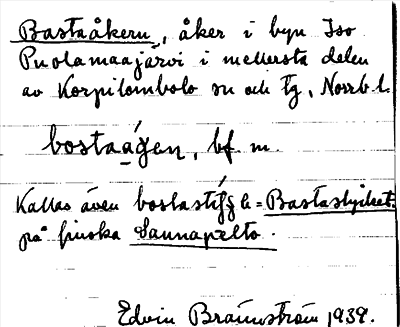 Bastaåkern, åker i byn Iso
Puolamaajärvi i mellersta delen
av Korpilombolo sn och tg, Norrb. l.
bostaaǵen, bf. m.
Kallas även bostastíǵǵe = Bastastycket.
på finska Saunapelto.
Edvin Brännström 1939.